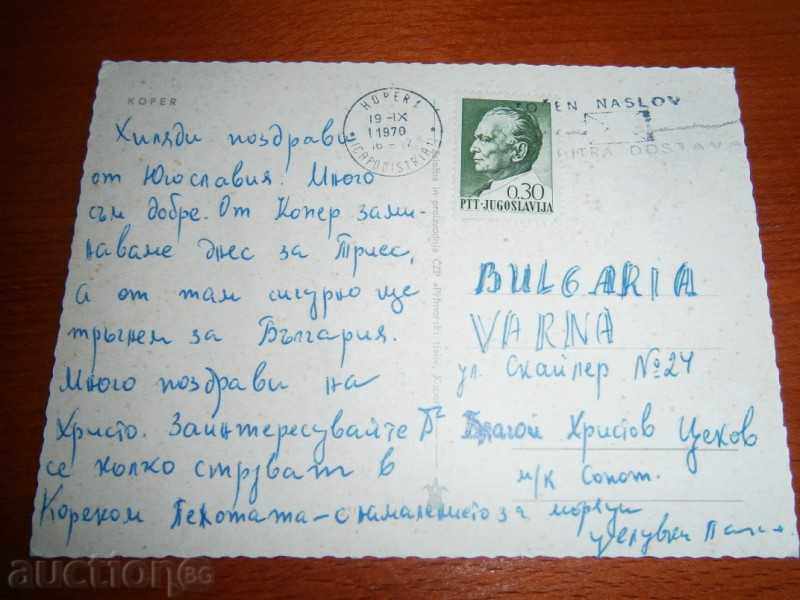 KOPER
Хиляди поздрави
от Югославия. Много
съм добре. От Копер зами-
наваме днес за Триест,
а от там сигурно ще
тръгнем за България.
Много поздрави на
Христо. Заинтересувайте
се колко струват в
Кореком – с намалението за моряци
целувки
KOPER 1
19-IX
1970
CAPODISTRIA
TOČEN NASLOV
HITRA DOSTAVA
0.30
PTT·JUGOSLAVIJA
BULGARIA
VARNA
ул. Скайлер №24
Благой Христов Цеков
м/к Сопот.
auction BG